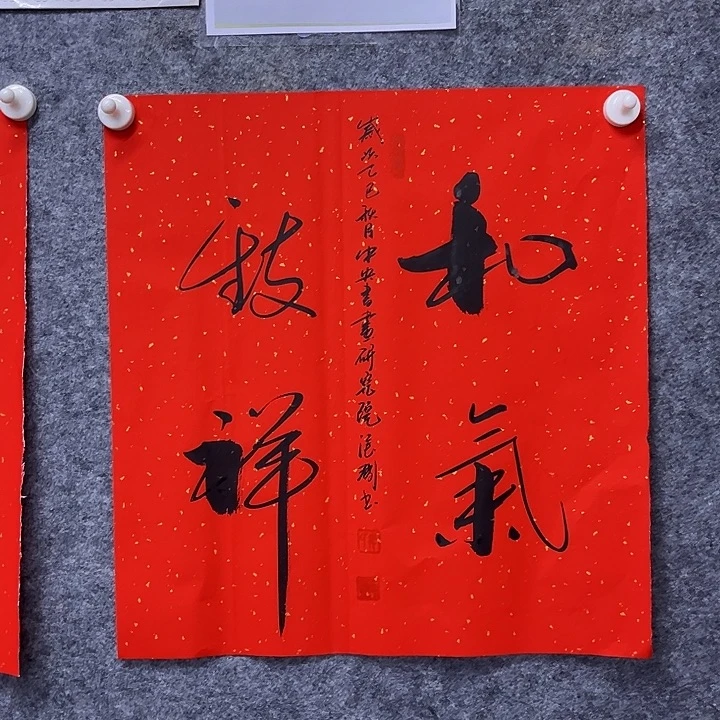 和氣
致祥
歲次乙巳秋月中央書畫研究院
書